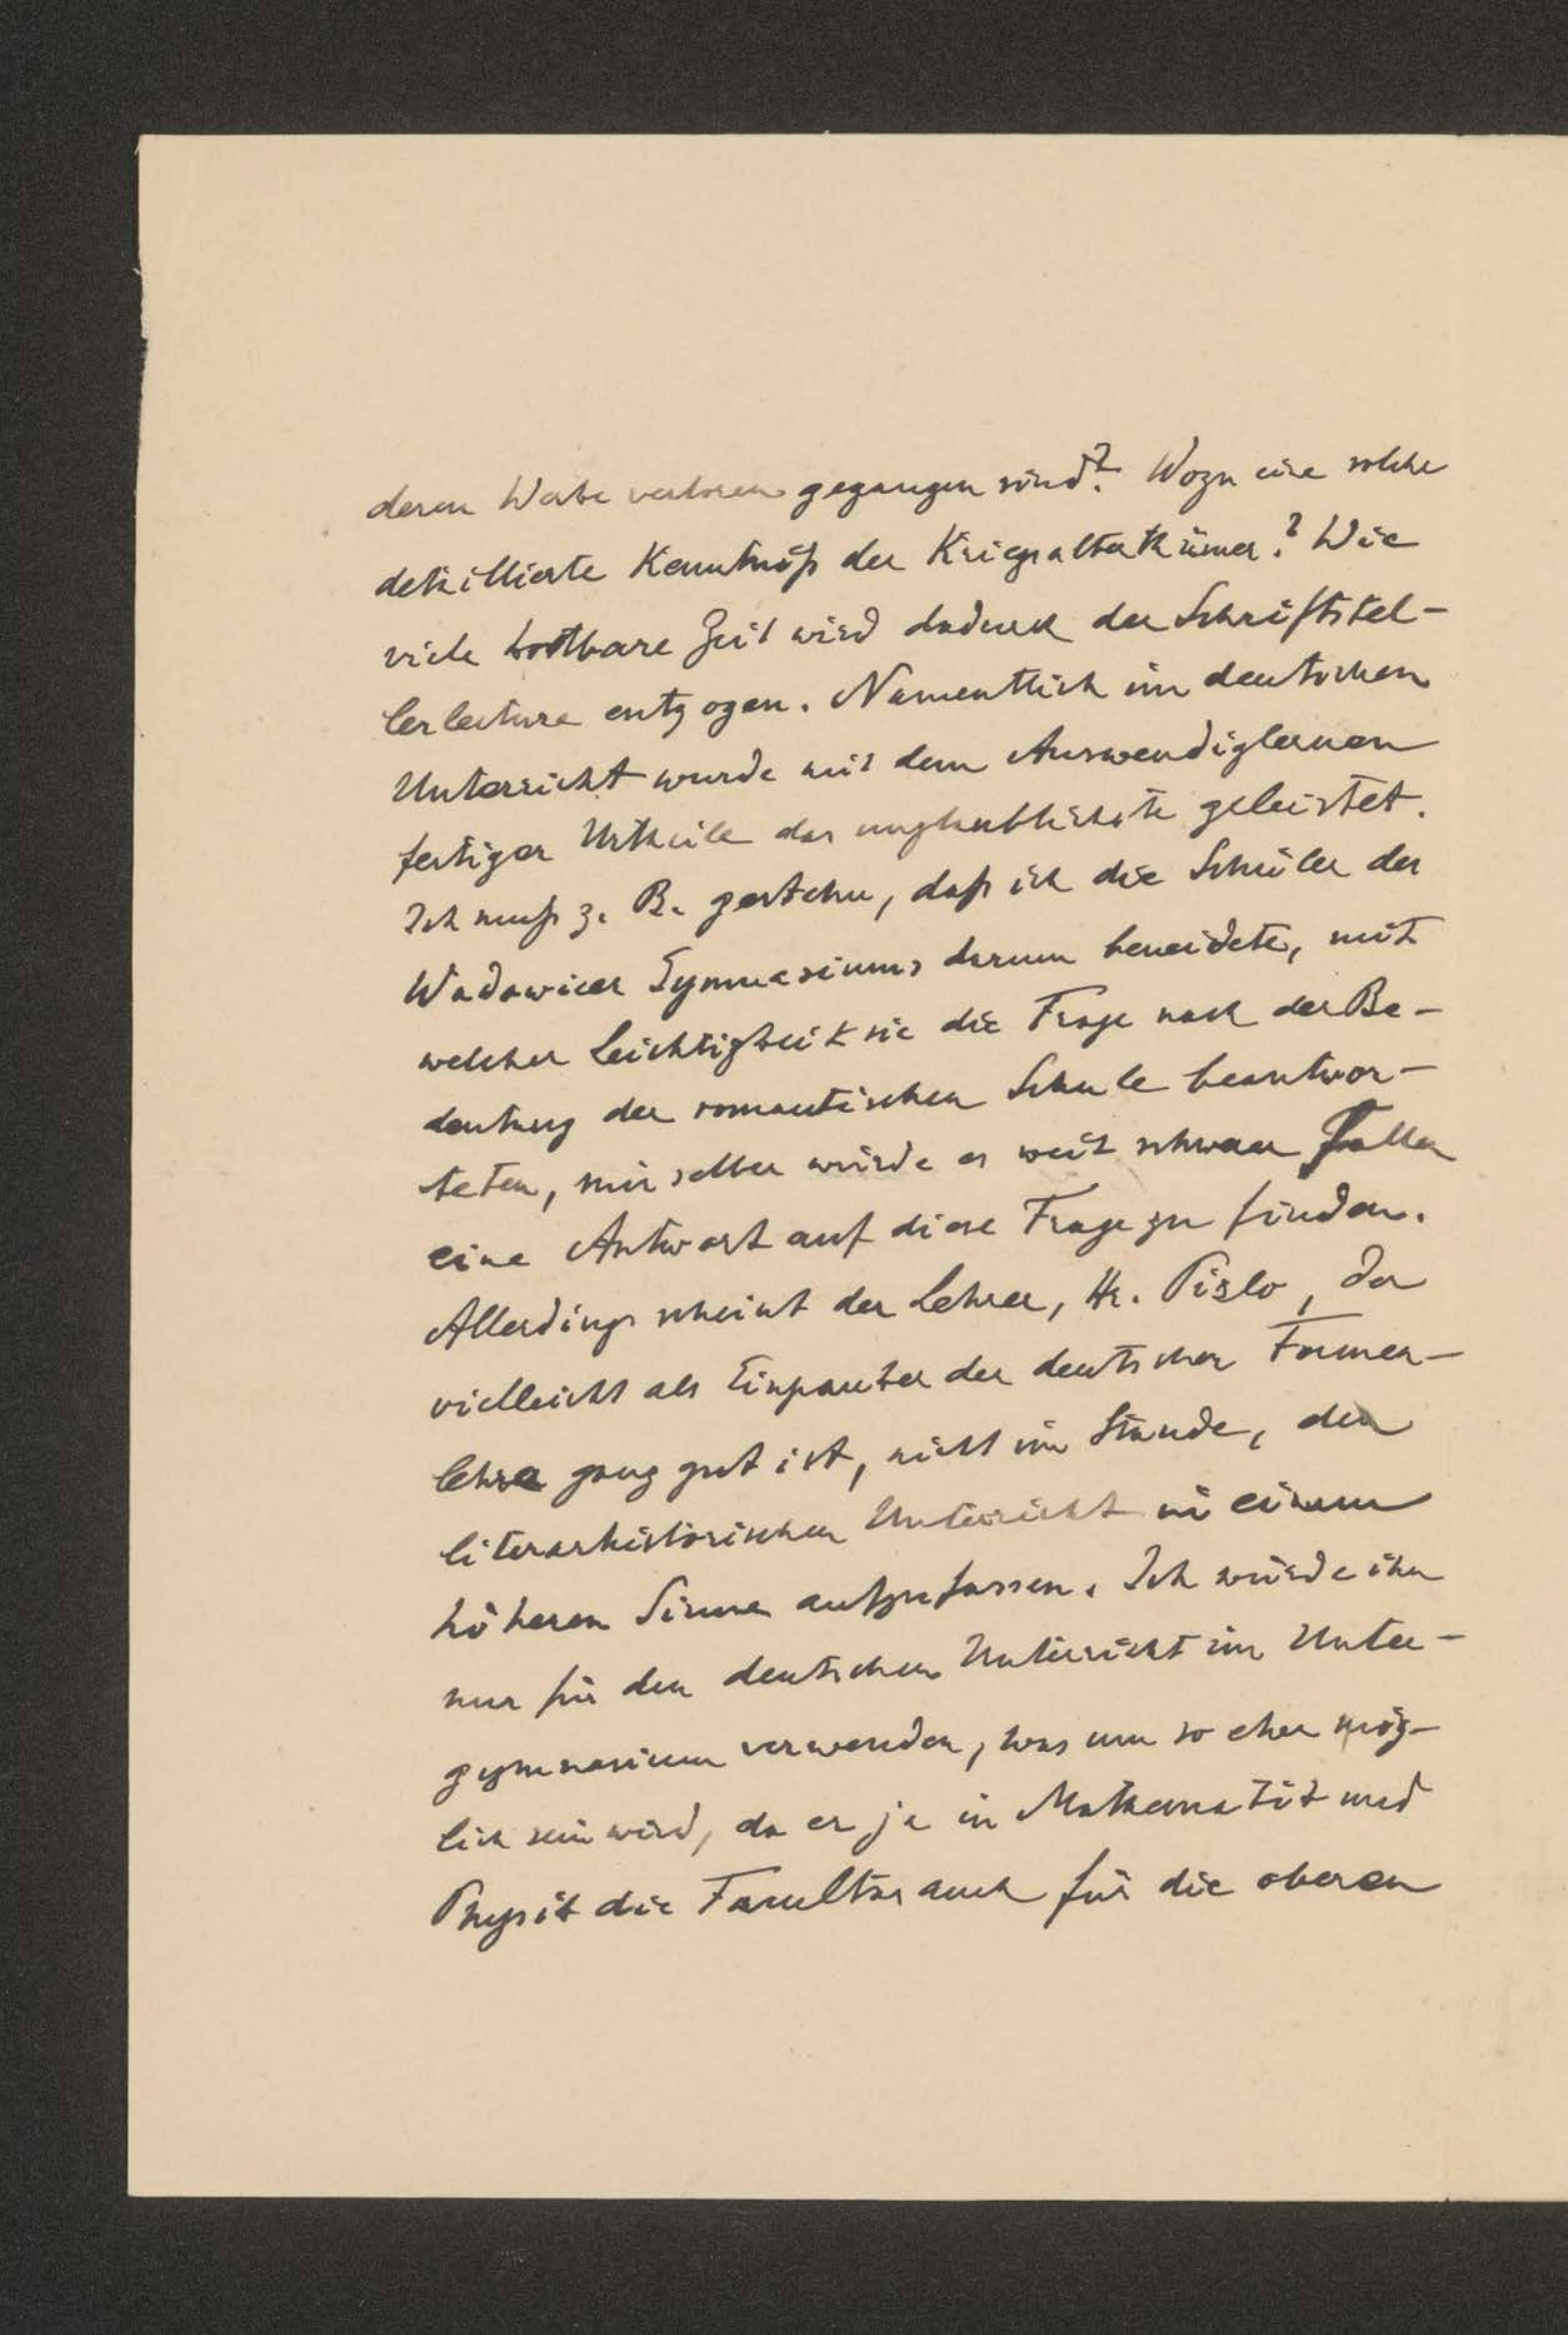 deren Werke verloren gegangen sind? Wozu eine solche
detaillierte Kenntniß der Kriegsalterthümer? Wie
viele kostbare Zeit wird dadurch der Schriftstel-
lerlecture entzogen. Namentlich im deutschen
Unterricht wurde mit dem Auswendiglernen
fertiger Urtheile das unglaublichste geleistet.
Ich muß z. B. gestehn, daß ich die Schüler des
Wadowicer Gymnasiums darum beneidete, mit
welcher Leichtigkeit sie die Frage nach der Be-
deutung der romantischen Schule beantwor-
teten, mir selber würde es weit schwerer fallen
eine Antwort auf diese Frage zu finden.
Allerdings scheint der Lehrer, Hr. Pislo, der
vielleicht als Einpauker der deutschen Formen-
lehre ganz gut ist, nicht im Stande, den
literarhistorischen Unterricht in einem
höheren Sinne aufzufassen. Ich würde ihn
nur für den deutschen Unterricht im Unter-
gymnasium verwenden, was um so eher mög-
lich sein wird, da er ja in Mathematik und
Physik die Facultas auch für die oberen